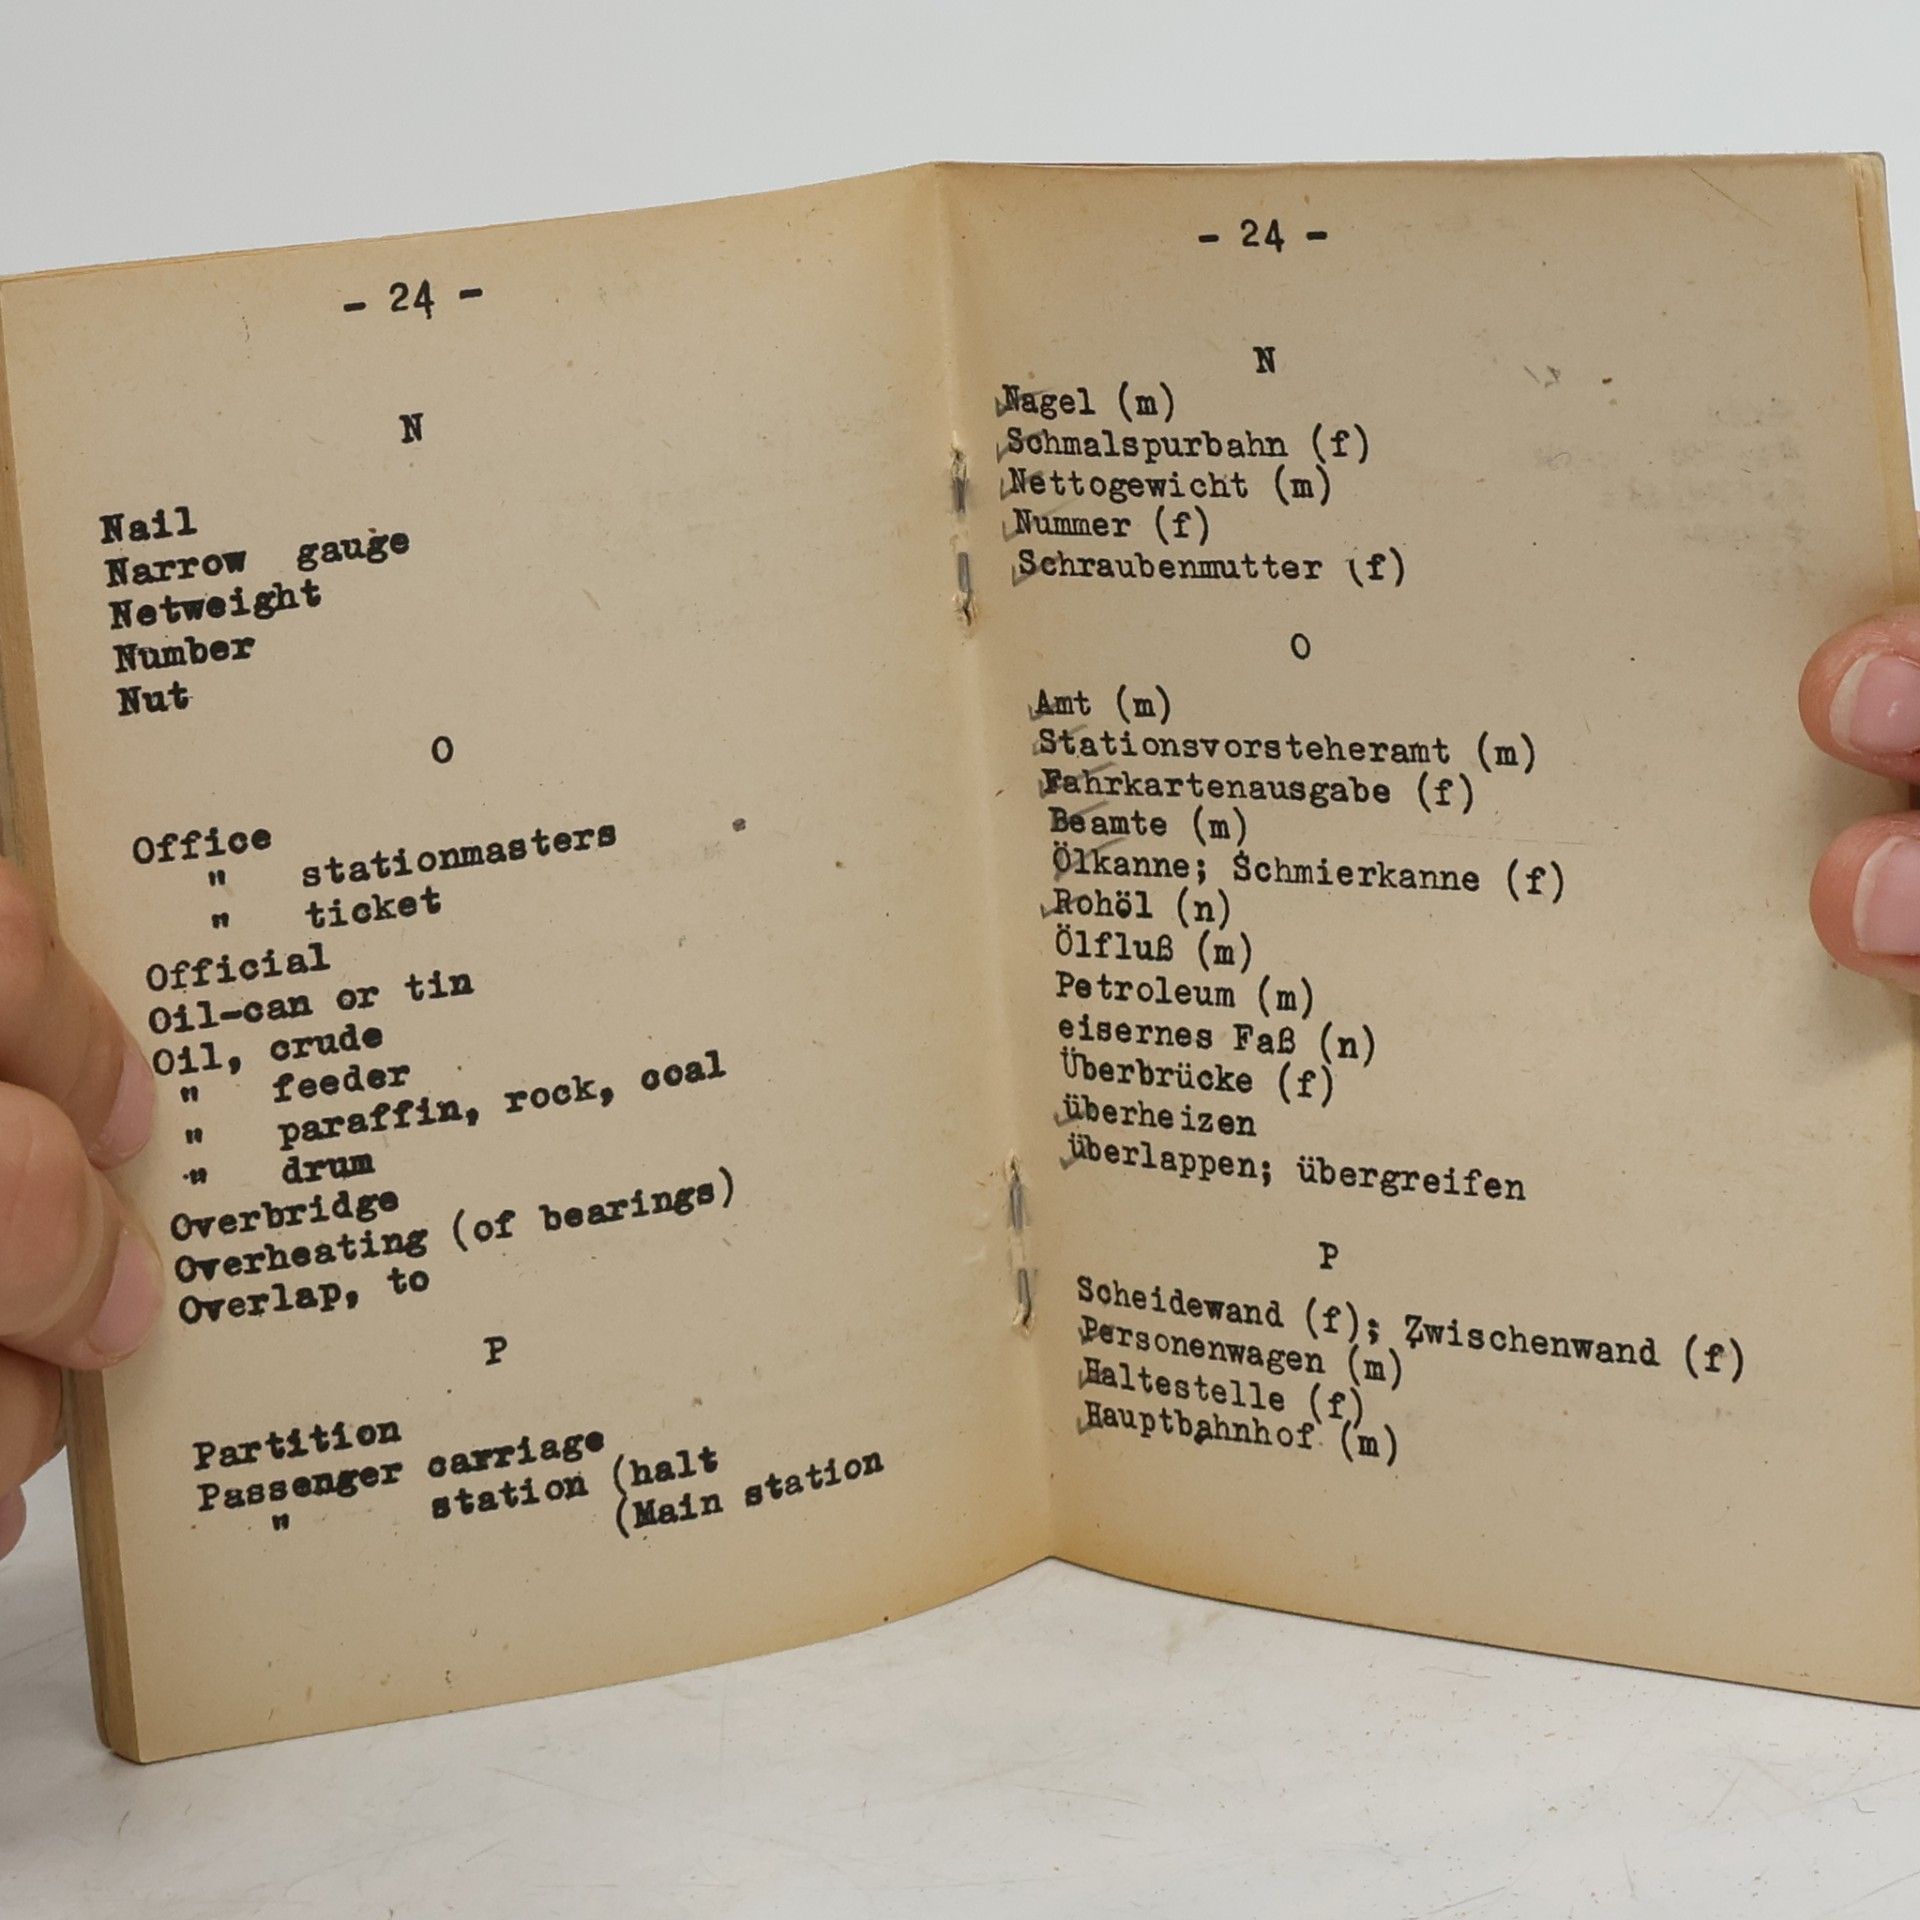 - 24 -
N
Nail
Narrow gauge
Netweight
Number
Nut
O
Office
" stationmasters
" ticket
Official
Oil-can or tin
Oil, crude
" feeder
" paraffin, rock, coal
" drum
Overbridge
Overheating (of bearings)
Overlap, to
P
Partition
Passenger carriage
" station (halt
(Main station
- 24 -
N
Nagel (m)
Schmalspurbahn (f)
Nettogewicht (m)
Nummer (f)
Schraubenmutter (f)
O
Amt (m)
Stationsvorsteheramt (m)
Fahrkartenausgabe (f)
Beamte (m)
Ölkanne; Schmierkanne (f)
Rohöl (n)
Ölfluß (m)
Petroleum (m)
eisernes Faß (n)
Überbrücke (f)
überheizen
überlappen; übergreifen
P
Scheidewand (f); Zwischenwand (f)
Personenwagen (m)
Haltestelle (f)
Hauptbahnhof (m)